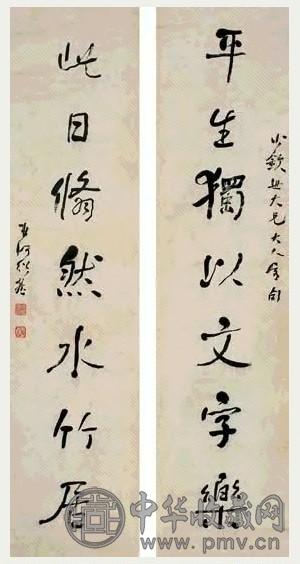 少欽世大兄大人属句
平生獨以文字樂
此日翛然水竹居
中华收藏网
www.pmv.cn